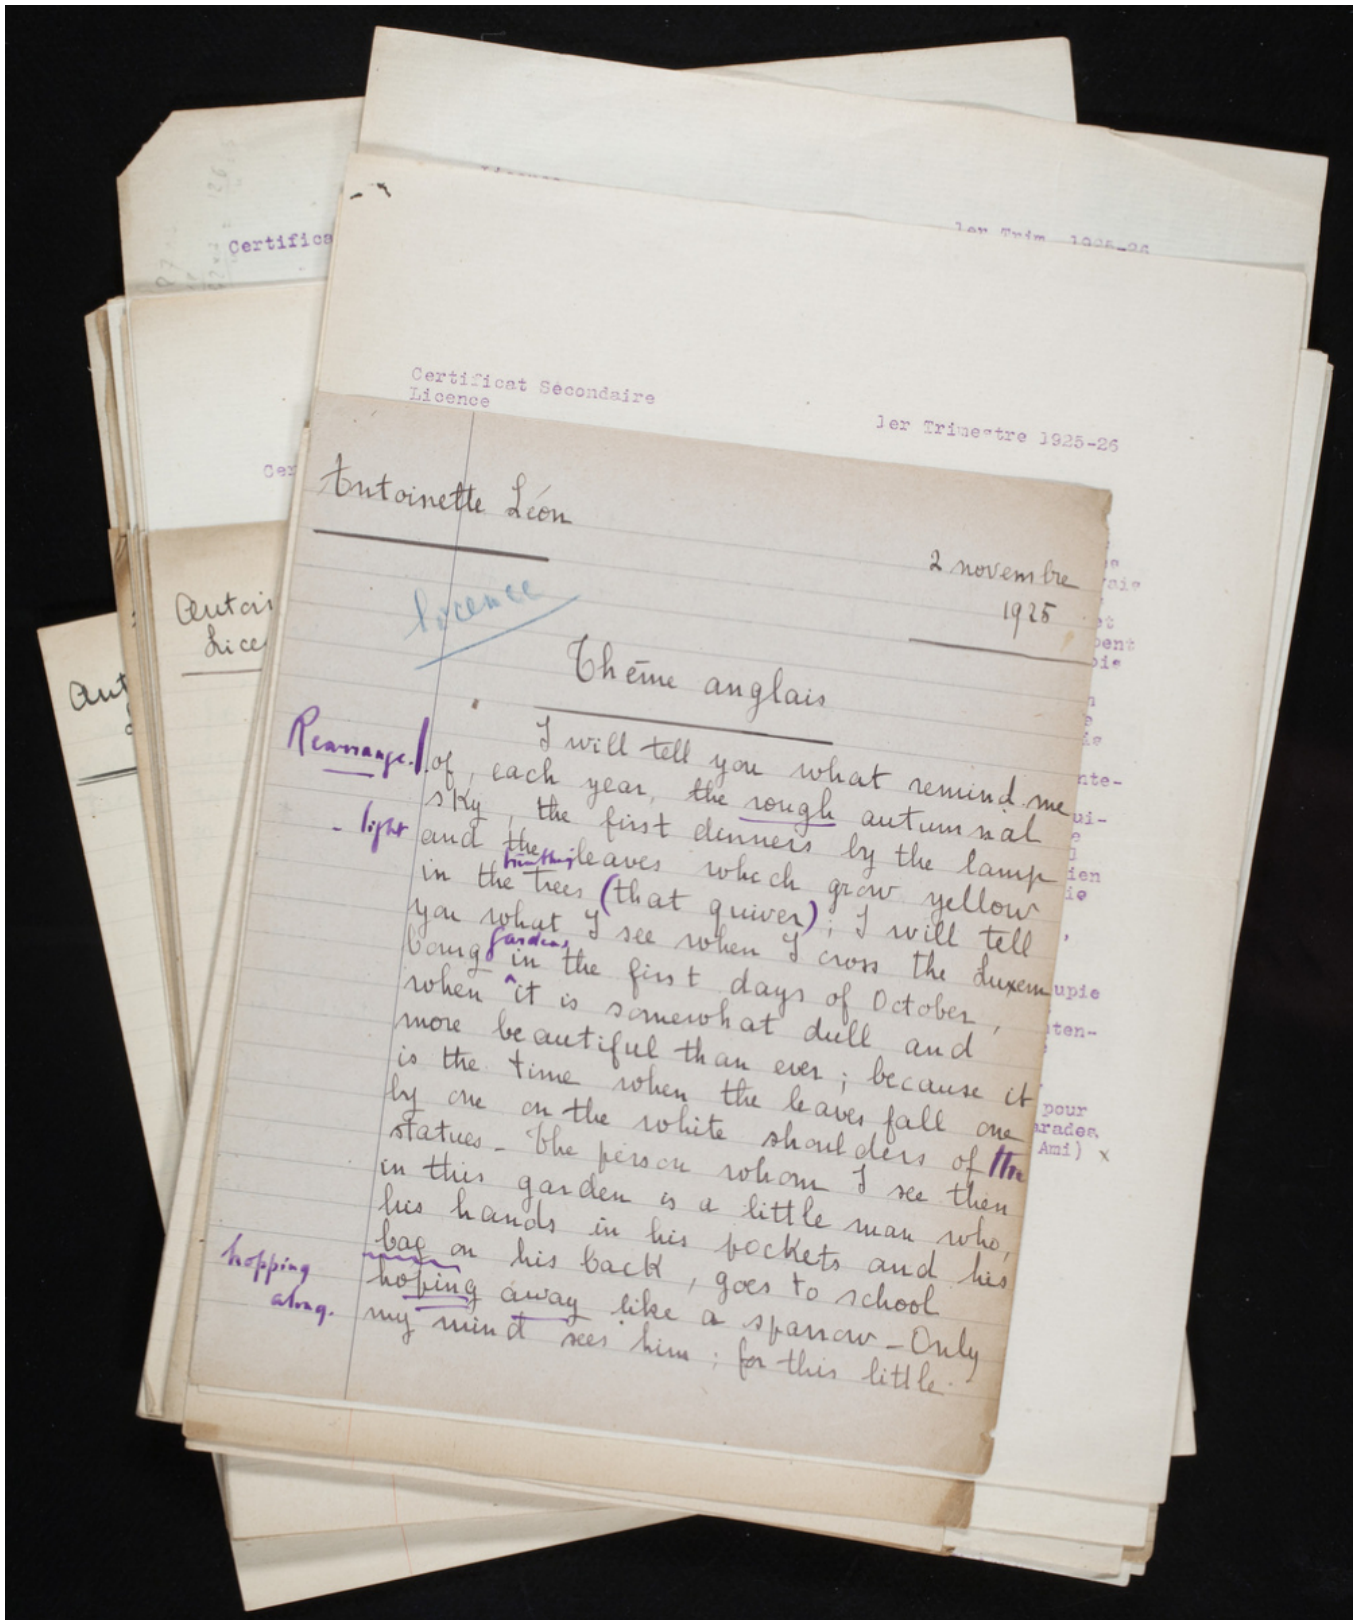 Certifica
1er Trim. 1925-26
Certificat Secondaire
Licence
1er Trimestre 1925-26
Cer
Antoinette Léon
2 novembre
1925
licence
Thème anglais
Rearrange.
I will tell you what remind me
of, each year, the rough autumnal
sky, the first dinners by the lamp
- light
and the leaves which grow yellow
in the trees (that quiver); I will tell
you what I see when I cross the Luxem
gardens
bourg in the first days of October,
when it is somewhat dull and
more beautiful than ever; because it
is the time when the leaves fall one
by one on the white shoulders of the
statues - The person whom I see then
in this garden is a little man who,
his hands in his pockets and his
bag on his back, goes to school
hopping
along.
hoping away like a sparrow - Only
my mind sees him; for this little
Antoi
Lice
Ant
nte-
ui-
ien
upie
ten-
pour
arades
Ami) x